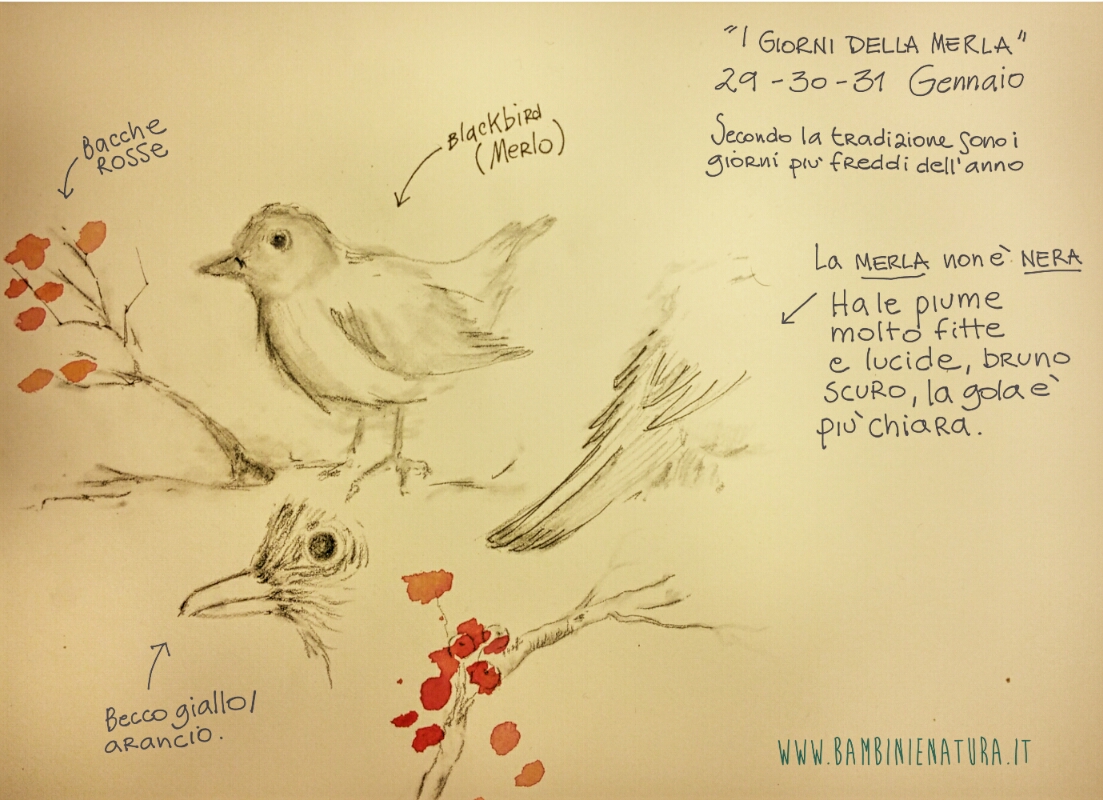 "I GIORNI DELLA MERLA"
29-30-31 Gennaio
Secondo la tradizione sono i
giorni più freddi dell'anno
Bacche
ROSSE
Blackbird
(Merlo)
La MERLA non è NERA
Ha le piume
molto fitte
e lucide, bruno
scuro, la gola è
più chiara.
Becco giallo/
arancio.
WWW.BAMBINIENATURA.IT